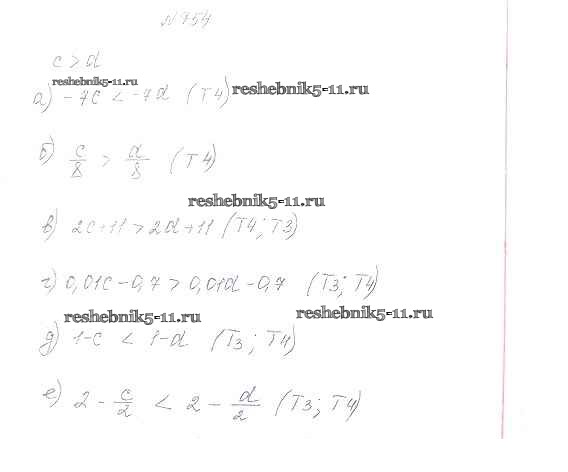 № 754
c > d
reshebnik5-11.ru
а) -7c < -7d (Т4) reshebnik5-11.ru
б) c/8 > d/8 (Т4)
reshebnik5-11.ru
в) 2c+11 > 2d+11 (Т4; Т3)
г) 0,01c - 0,7 > 0,01d - 0,7 (Т3; Т4)
reshebnik5-11.ru reshebnik5-11.ru
д) 1-c < 1-d (Т3; Т4)
е) 2 - c/2 < 2 - d/2 (Т3; Т4)